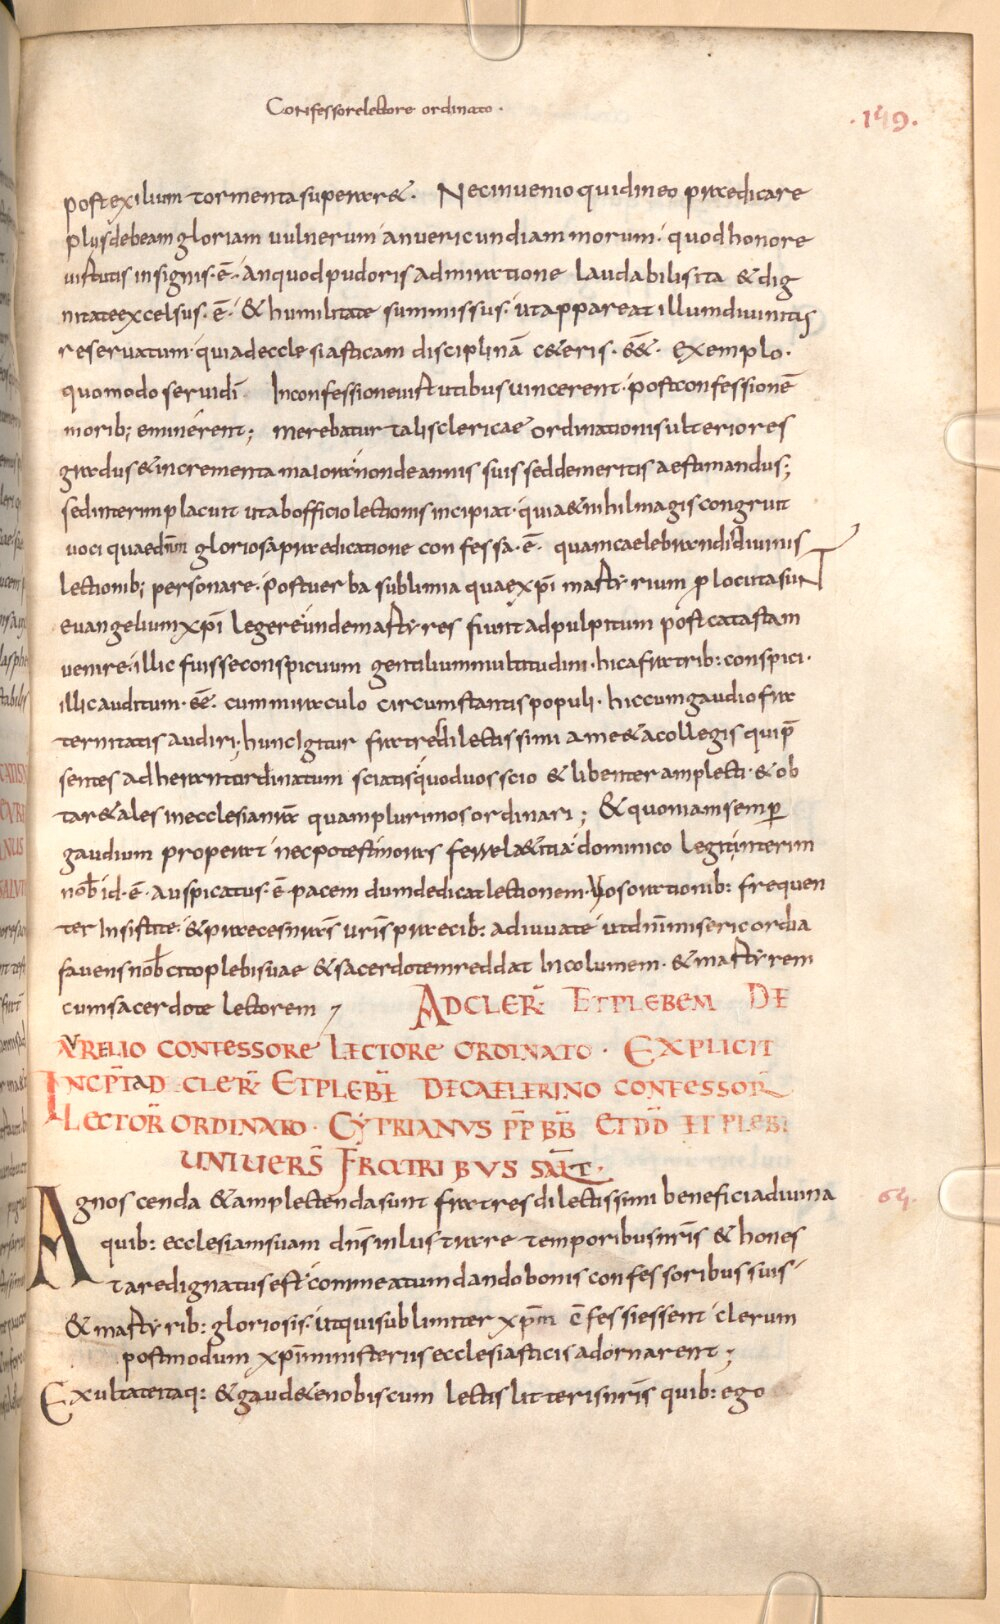 Confessore lectore ordinato ·
· 149 ·
post exilium tormenta superare&. Nec invenio quid in eo praedicare
plus debeam gloriam vulnerum an vericundiam morum · quod honore
virtutis insignis · ē · an quod pudoris admiratione laudabilis ita & dig
nitate excelsus · ē · & humilitate summissus · ut appareat illum divinitus
reservatum · qui ad ecclesiasticam disciplinā c&eris · eē& · exemplo ·
quomodo servi dī In confessione virtutibus vincerent · post confessionē
morib; eminerent; merebatur talis clericae ordinationis ulteriores
gradus & incrementa maiora non de annis suis sed de meritis aestimandus;
sed interim placuit ut ab officio lectionis incipiat · quia & nihil magis congruit
voci quae dn̄m gloriosa praedicatione confessa · ē · quam caelebrandi divinis
lectionib; personare · post verba sublimia quae xp̄i martyrium prolocuta sunt
evangelium xp̄i legere unde martyres fiunt ad pulpitum post catastam
venire · illic fuisse conspicuum gentilium multitudini · hic a fratrib: conspici ·
illic auditum · eē · cum miraculo circumstantis populi · hic cum gaudio fra
ternitatis audiri; hunc Igitur fratres dilectissimi a me & a collegis qui p̄
sentes adherant ordinatum sciatis quod vos scio & libenter amplecti · & ob
tare tales in ecclesia nr̄a quam plurimos ordinari; & quoniam semper
gaudium properat nec potest moras ferre la&itia dominico legit interim
nob̄ id · ē · auspicatus · ē · pacem dum dedicat lectionem · Vos orationib: frequen
ter Insistite · & praeces nr̄as vr̄is praecib: adiuvate ut dn̄i misericordia
favens nob̄ cito plebi suae & sacerdotem reddat Incolumem · & martyrem
cum sacerdote lectorem ; AD CLER̄ ET PLEBEM DE
AVRELIO CONFESSORE LECTORE ORDINATO · EXPLICIT
INCP̄T AD CLER̄ ET PLEBĒ DE CAELERINO CONFESSOR̄
LECTOR̄ ORDINATO · CYPRIANVS P̄P̄ B̄B̄ ET D̄D̄ ET PLEBI
UNIVERS̄ FRATRIBVS SAL̄T ·
Agnoscenda & amplectenda sunt fratres dilectissimi beneficia divina 64.
quib: ecclesiam suam dn̄s inlustrare temporibus nr̄is & hones
tare dignatus est commeatum dando bonis confessoribus suis
& martyrib: gloriosis · ut qui sublimiter xp̄m c̄fessi essent clerum
postmodum xp̄i ministeriis ecclesiasticis adornarent;
Exultate itaq: & gaud&e nobiscum lectis litteris nr̄is quib: ego